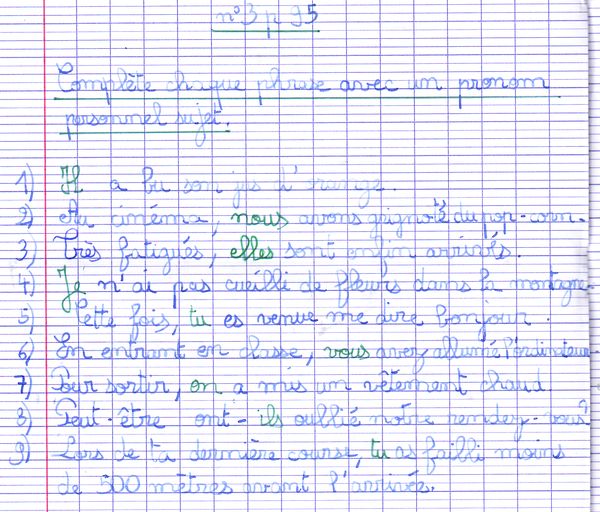 n°3 p 95
Complète chaque phrase avec un pronom
personnel sujet.
1) Il a bu son jus d'orange.
2) Au cinéma, nous avons grignoté du pop-corn.
3) Très fatigués, elles sont enfin arrivés.
4) Je n'ai pas cueilli de fleurs dans la montagne.
5) Cette fois, tu es venue me dire bonjour.
6) En entrant en classe, vous avez allumé l'ordinateur
7) Pour sortir, on a mis un vêtement chaud
8) Peut-être ont-ils oublié notre rendez-vous ?
9) Lors de ta dernière course, tu as failli moins
de 500 mètres avant l'arrivée.